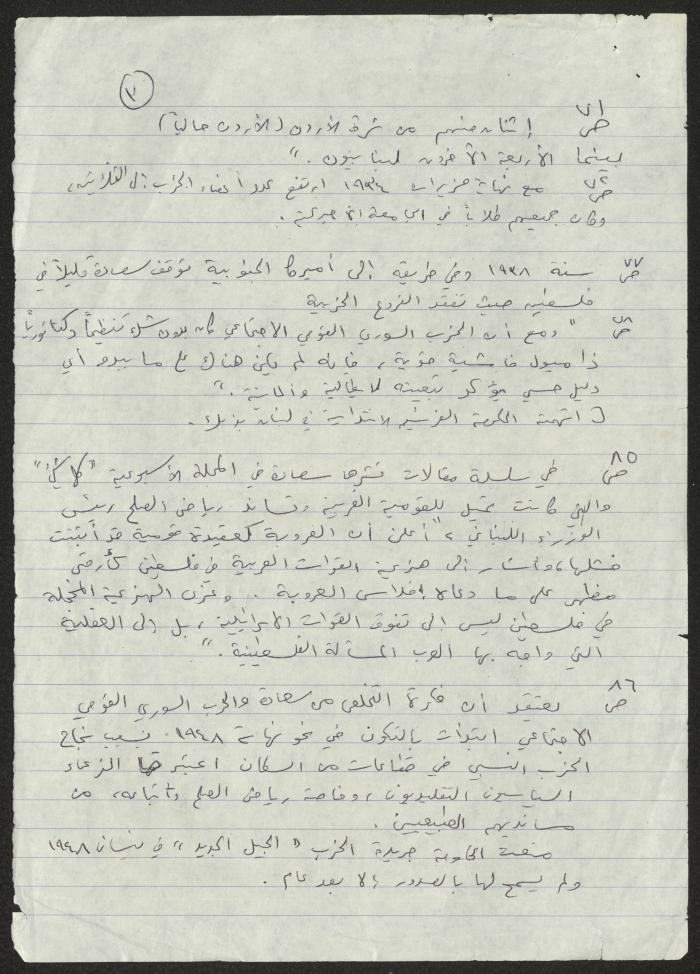 ٣
ص ٧١ إثنان منهم من شرق الأردن (الأردن حالياً)
بينما الأربعة الآخرون لبنانيون. "
ص ٧٢ مع نهاية حزيران ١٩٣٤ ارتفع عدد أعضاء الحزب إلى الثلاثين،
وكان جميعهم طلاباً في الجامعة الأميركية.
ص ٧٧ سنة ١٩٣٨ وفي طريقه إلى أميركا الجنوبية توقف سعادة قليلاً في
فلسطين حيث تفقد الفروع الحزبية
ص ٧٨ " ومع أن الحزب السوري القومي الاجتماعي كان بدون شك تنظيماً دكتاتورياً
ذا ميول فاشية قوية، فإنه لم يكن هناك على ما يبدو أي
دليل حسي يؤكد تبعيته لإيطالية وألمانية. "
[ اتهمته الحكومة الفرنسية الانتدابية في لبنان بذلك.
ص ٨٥ في سلسلة مقالات نشرها سعادة في المجلة الأسبوعية " كل شيء "
والتي كانت تميل للقومية العربية وتساند رياض الصلح رئيس
الوزراء اللبناني، " أعلن أن العروبة كعقيدة قومية قد أثبتت
فشلها، وأشار إلى هزيمة القوات العربية في فلسطين كأرقى
مظهر على ما دعاه إفلاس العروبة .. وعزى الهزيمة المخجلة
في فلسطين ليس إلى تفوق القوات الإسرائيلية، بل إلى العقلية
التي واجه بها العرب المسألة الفلسطينية. "
ص ٨٦ يعتقد أن فكرة التخلص من سعادة والحزب السوري القومي
الاجتماعي ابتدأت بالتكون في نحو نهاية ١٩٤٨. بسبب نجاح
الحزب النسبي في قطاعات من السكان اعتبرها الزعماء
السياسيون التقليديون، وخاصة رياض الصلح وأتباعه، من
مسانديهم الطبيعيين.
منعت الحكومة جريدة الحزب " الجيل الجديد " في نيسان ١٩٤٨
ولم يسمح لها بالصدور إلا بعد عام.